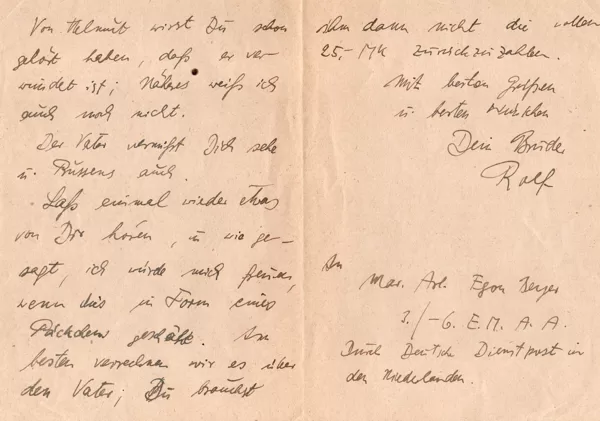 Von Helmut wirst Du schon
gehört haben, daß er ver-
wundet ist; Näheres weiß ich
auch noch nicht.
Der Vater vermißt Dich sehr
u. auch.
Laß einmal wieder etwas
von Dir hören, u. wie ge-
sagt, ich würde mich freuen,
wenn dies in Form eines
Päckchens geschäht. Am
besten verrechnen wir es über
den Vater; Du brauchst
ihm dann nicht die vollen
25,- Mk zurückzuzahlen.
Mit besten Grüßen
u. besten Wünschen
Dein Bruder
Rolf
An
Mar. Art. Egon Berger
3./-6. E. M. A. A.
Durch Deutsche Dienstpost in
den Niederlanden.